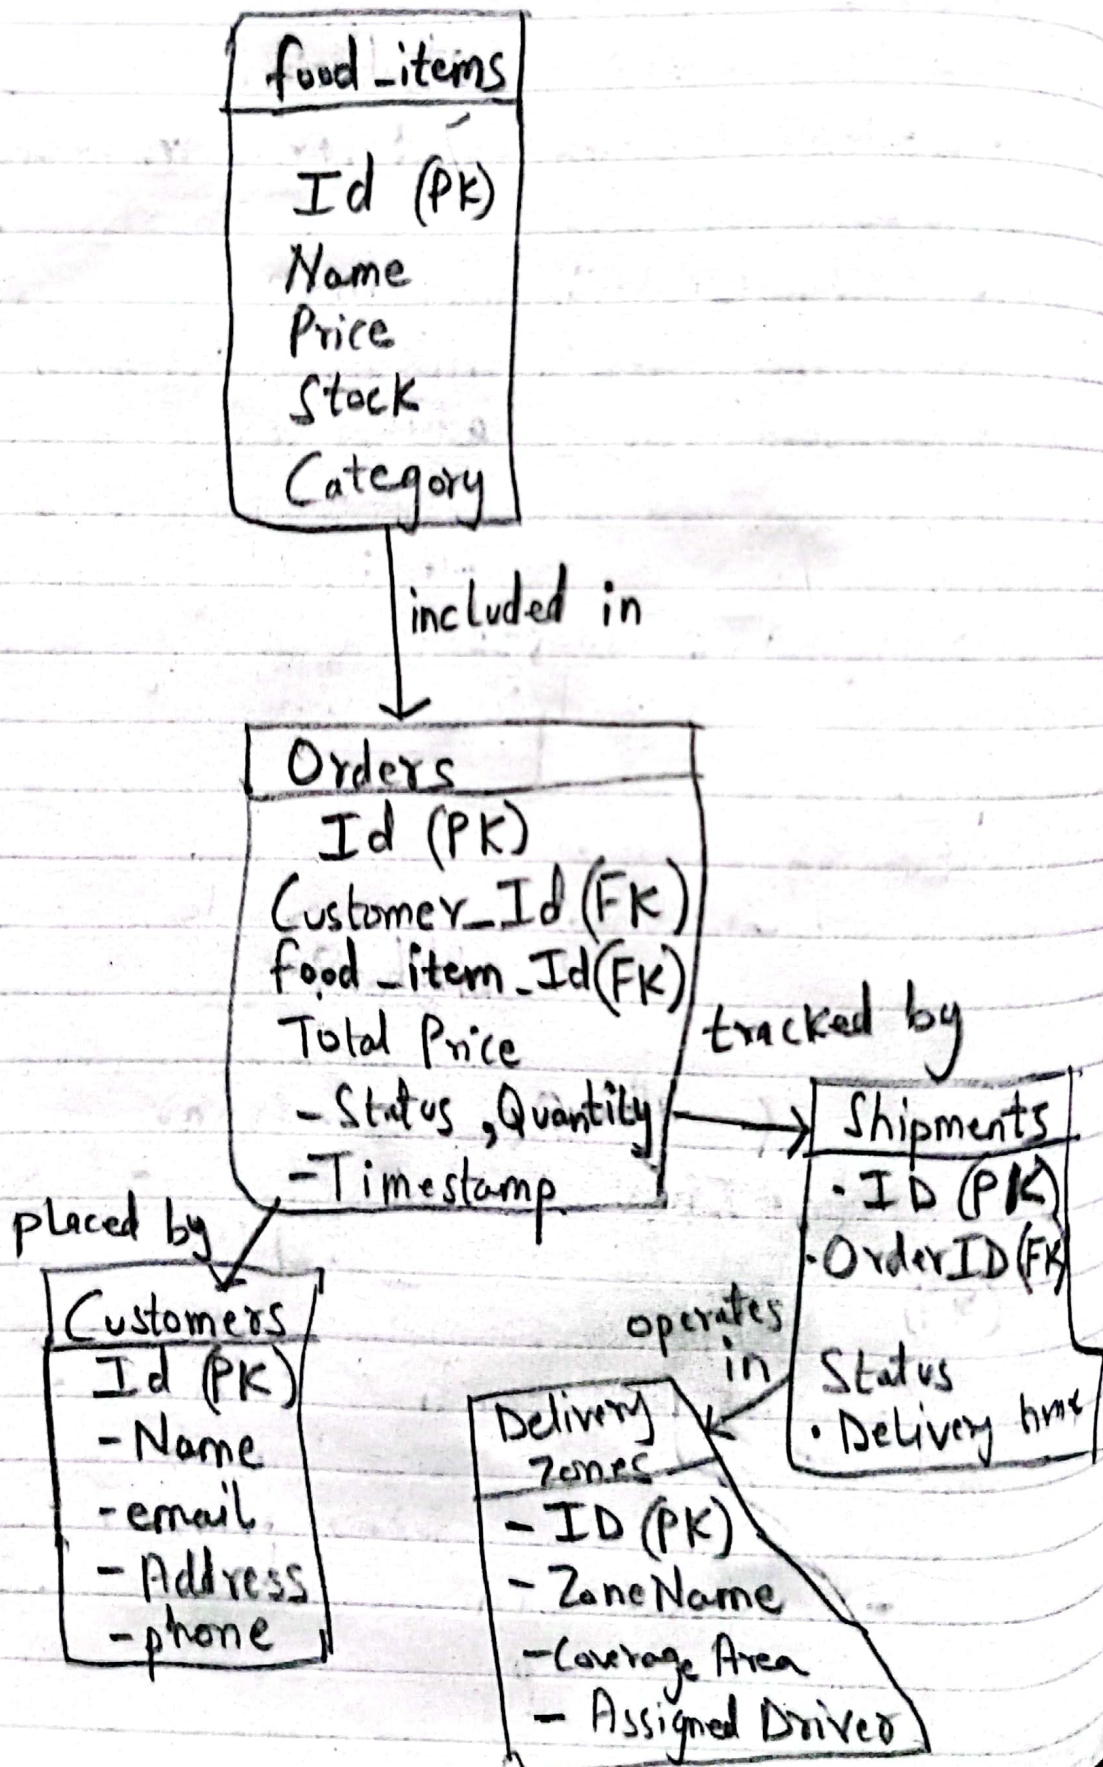 food_items
Id (PK)
Name
Price
Stock
Category
included in
Orders
Id (PK)
Customer_Id (FK)
food_item_Id (FK)
Total Price
- Status, Quantity
- Timestamp
tracked by
Shipments
· ID (PK)
· OrderID (FK)
Status
· Delivery time
placed by
Customers
Id (PK)
- Name
- email
- Address
- phone
operates
in
Delivery
Zones
- ID (PK)
- ZoneName
- Coverage Area
- Assigned Driver